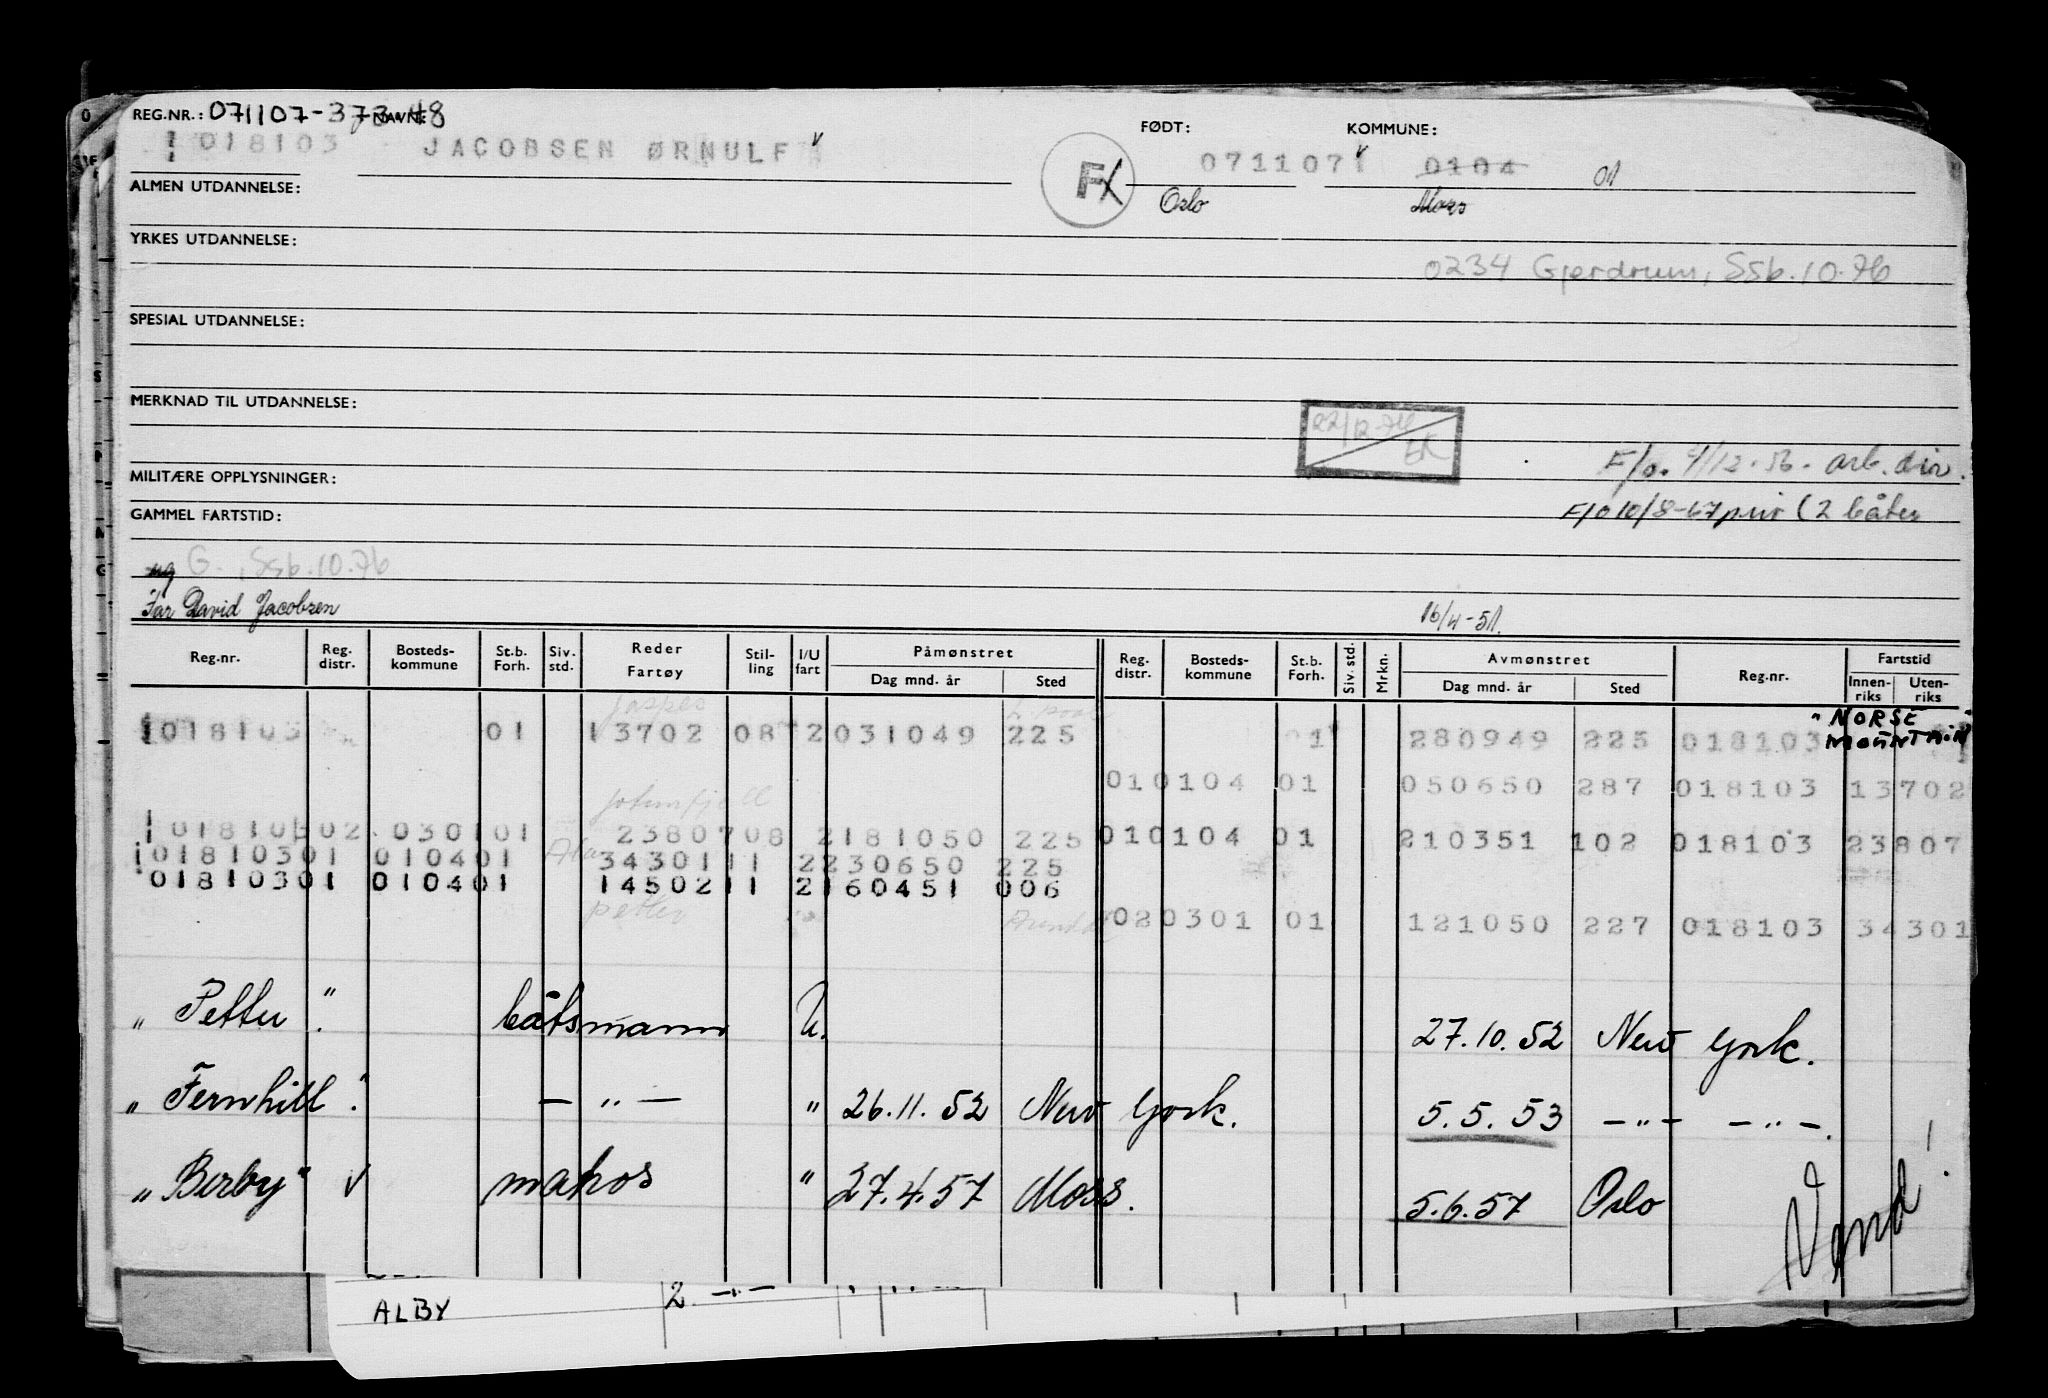 REG.NR.: 071107-373 NAVN: 48
FØDT: KOMMUNE:
018103 JACOBSEN ØRNULF
F 071107 0104 01
Oslo Moss
ALMEN UTDANNELSE:
YRKES UTDANNELSE:
0234 Gjerdrum, Ssb.10.76
SPESIAL UTDANNELSE:
MERKNAD TIL UTDANNELSE:
22/12-76
EK
F/o. 4/12.56. arb.dir.
MILITÆRE OPPLYSNINGER:
F/o 10/8-67 priv (2 båter
GAMMEL FARTSTID:
ug G. , Ssb.10.76
Far David Jacobsen 16/4-51.
Reg.nr. Reg. distr. Bosteds-kommune St.b. Forh. Siv. std. Reder Fartøy Stil-ling I/U fart Påmønstret Dag mnd. år Sted Reg. distr. Bosteds-kommune St.b. Forh. Siv. std. Mrkn. Avmønstret Dag mnd. år Sted Reg.nr. Fartstid Innen-riks Uten-riks
"NORSE
MOUNTAIN
018103 01 13702 08 2 031049 225 01 280949 225 018103
010104 01 050650 287 018103 13702
Jotunfjell
018103 02 0301 01 23807 08 2 181050 225 010104 01 210351 102 018103 23807
018103 01 0104 01 34301 11 2 230650 225
018103 01 0104 01 14502 11 2 160451 006
petter Arendal
020301 01 121050 227 018103 34301
"Petter". båtsmann U. 27.10.52 New York.
"Fernhill". — " — " 26.11.52 New York. 5.5.53 — " — — " —.
"Berby" v matros " 27.4.57 Moss. 5.6.57 Oslo
Vend!
ALBY 2. — " —